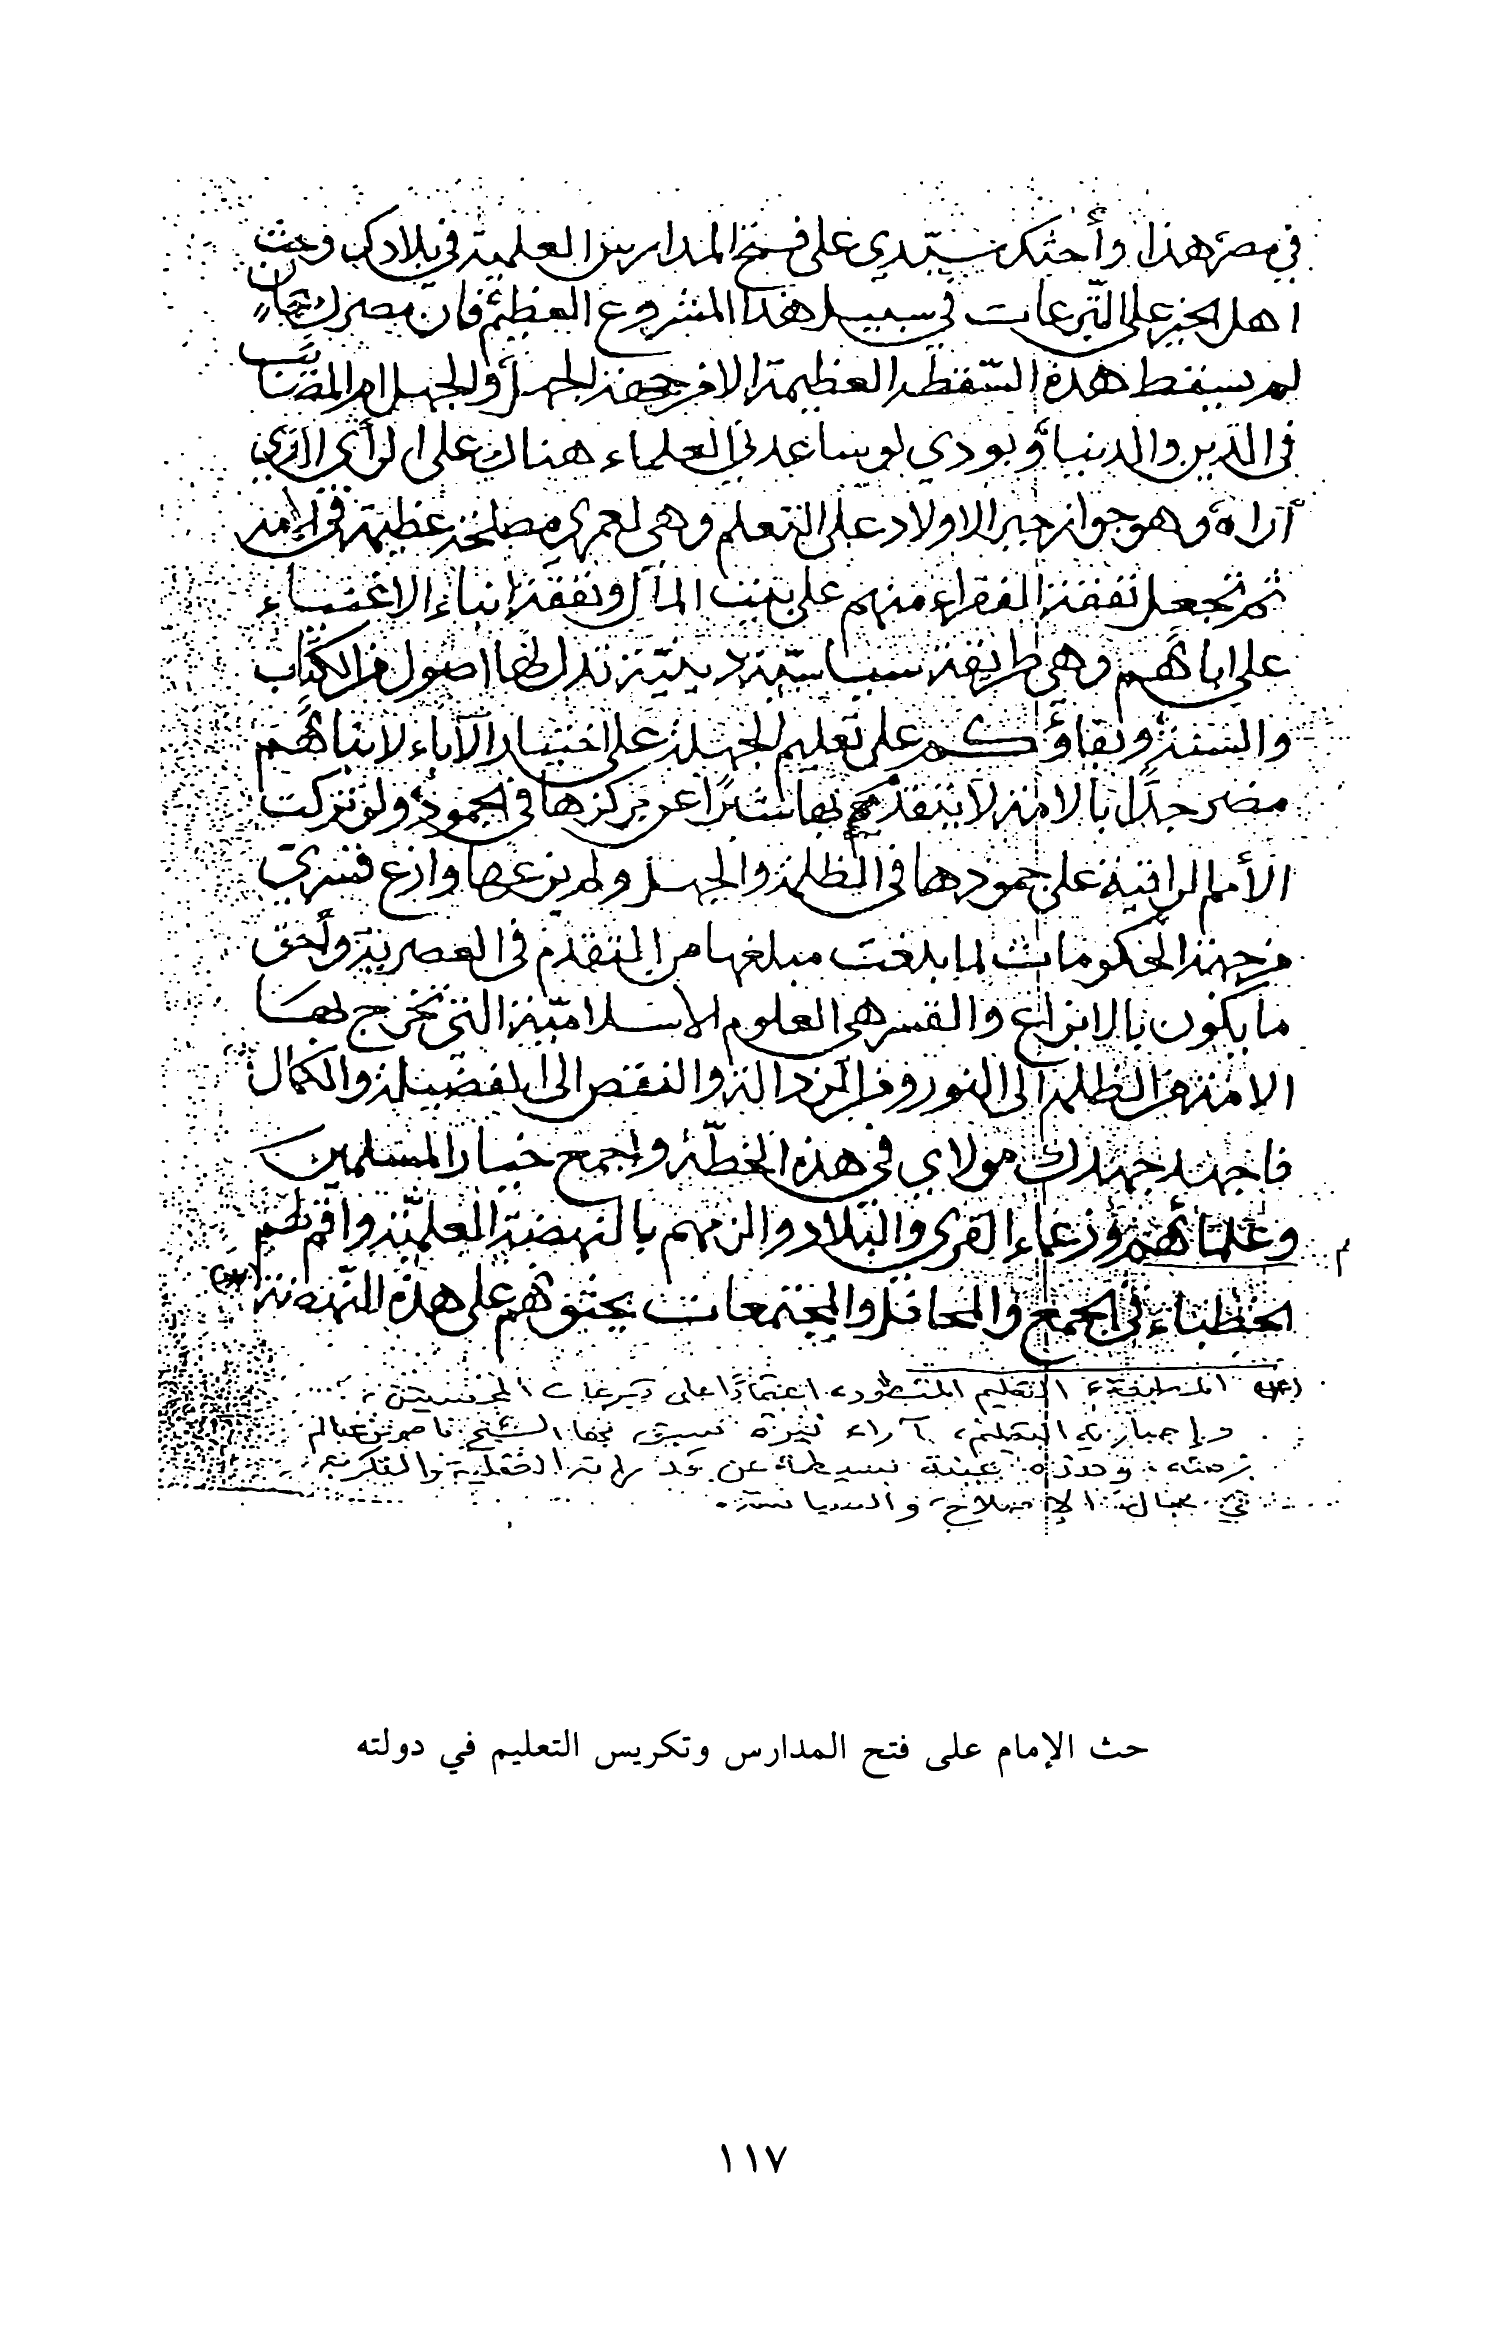 في مصر هذا وأحثك سيدي على فتح المدارس العلمية في بلادكم وحث
اهل الخير على التبرعات في سبيل هذا المشروع العظيم فان مصرك عمان
لم يسقط هذه السقطة العظيمة الا من جهة الجهل والجهل ام المصائب
في الدين والدنيا وبودي لو ساعدني العلماء هناك على الرأي الذي
أراه وهو جواز جبر الاولاد على التعلم وهي لعمري مصلحة عظيمة في الامة
ثم تجعل نفقة الفقراء منهم على بيت المال ونفقة ابناء الاغنياء
على ابائهم وهي طريقة سياسية دينية تدل لها اصول من الكتاب
والسنة وبقاؤكم على تعليم الجهلة على اختيار الآباء لابنائهم
مضر جدًا بالامة لا يتقدم بها شبرًا عن مركزها في الجمود ولو تركت
الأمم الراقية على جمودها في الظلمة والجهل ولم يزعها وازع قسري
من جهة الحكومات لما بلغت مبلغها من التقدم في العصرية وأحق
ما يكون بالايزاع والقسر هي العلوم الاسلامية التي تخرج بها
الامة من الظلمة الى النور ومن الرذالة والنقص الى الفضيلة والكمال
فاجهد جهدك مولاي في هذه الخطة واجمع خيار المسلمين
وعلمائهم وزعماء القرى والبلاد والزمهم بالنهضة العلمية واقم لهم
الخطباء في الجمع والمحافل والمجتمعات يحثوهم على هذه النهضة (*)
(*) التعليم اعتمادًا على تبرعات المحسنين،
وإجبارية التعليم، آراء نيرة سبق بها الشيخ ناصر عالم
زمنه، وهذه عينة بسيطة عن العقلية والفكرية
في مجال الإصلاح والسياسة.
حث الإمام على فتح المدارس وتكريس التعليم في دولته
١١٧